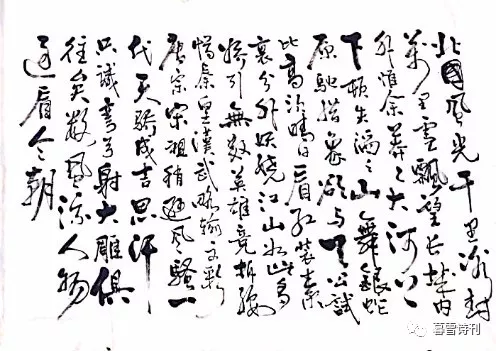 北國風光千里冰封
萬里雪飄望长城内
外惟余莽々大河上
下顿失滔々山舞銀蛇
原馳蜡象欲与天公試
比高须晴日看红装素
裹分外妖娆江山如此多
娇引無数英雄竞折腰
惜秦皇漢武略输文彩
唐宗宋祖稍逊风骚一
代天骄成吉思汗
只識弯弓射大雕俱
往矣数風流人物
还看今朝
暮雪诗刊